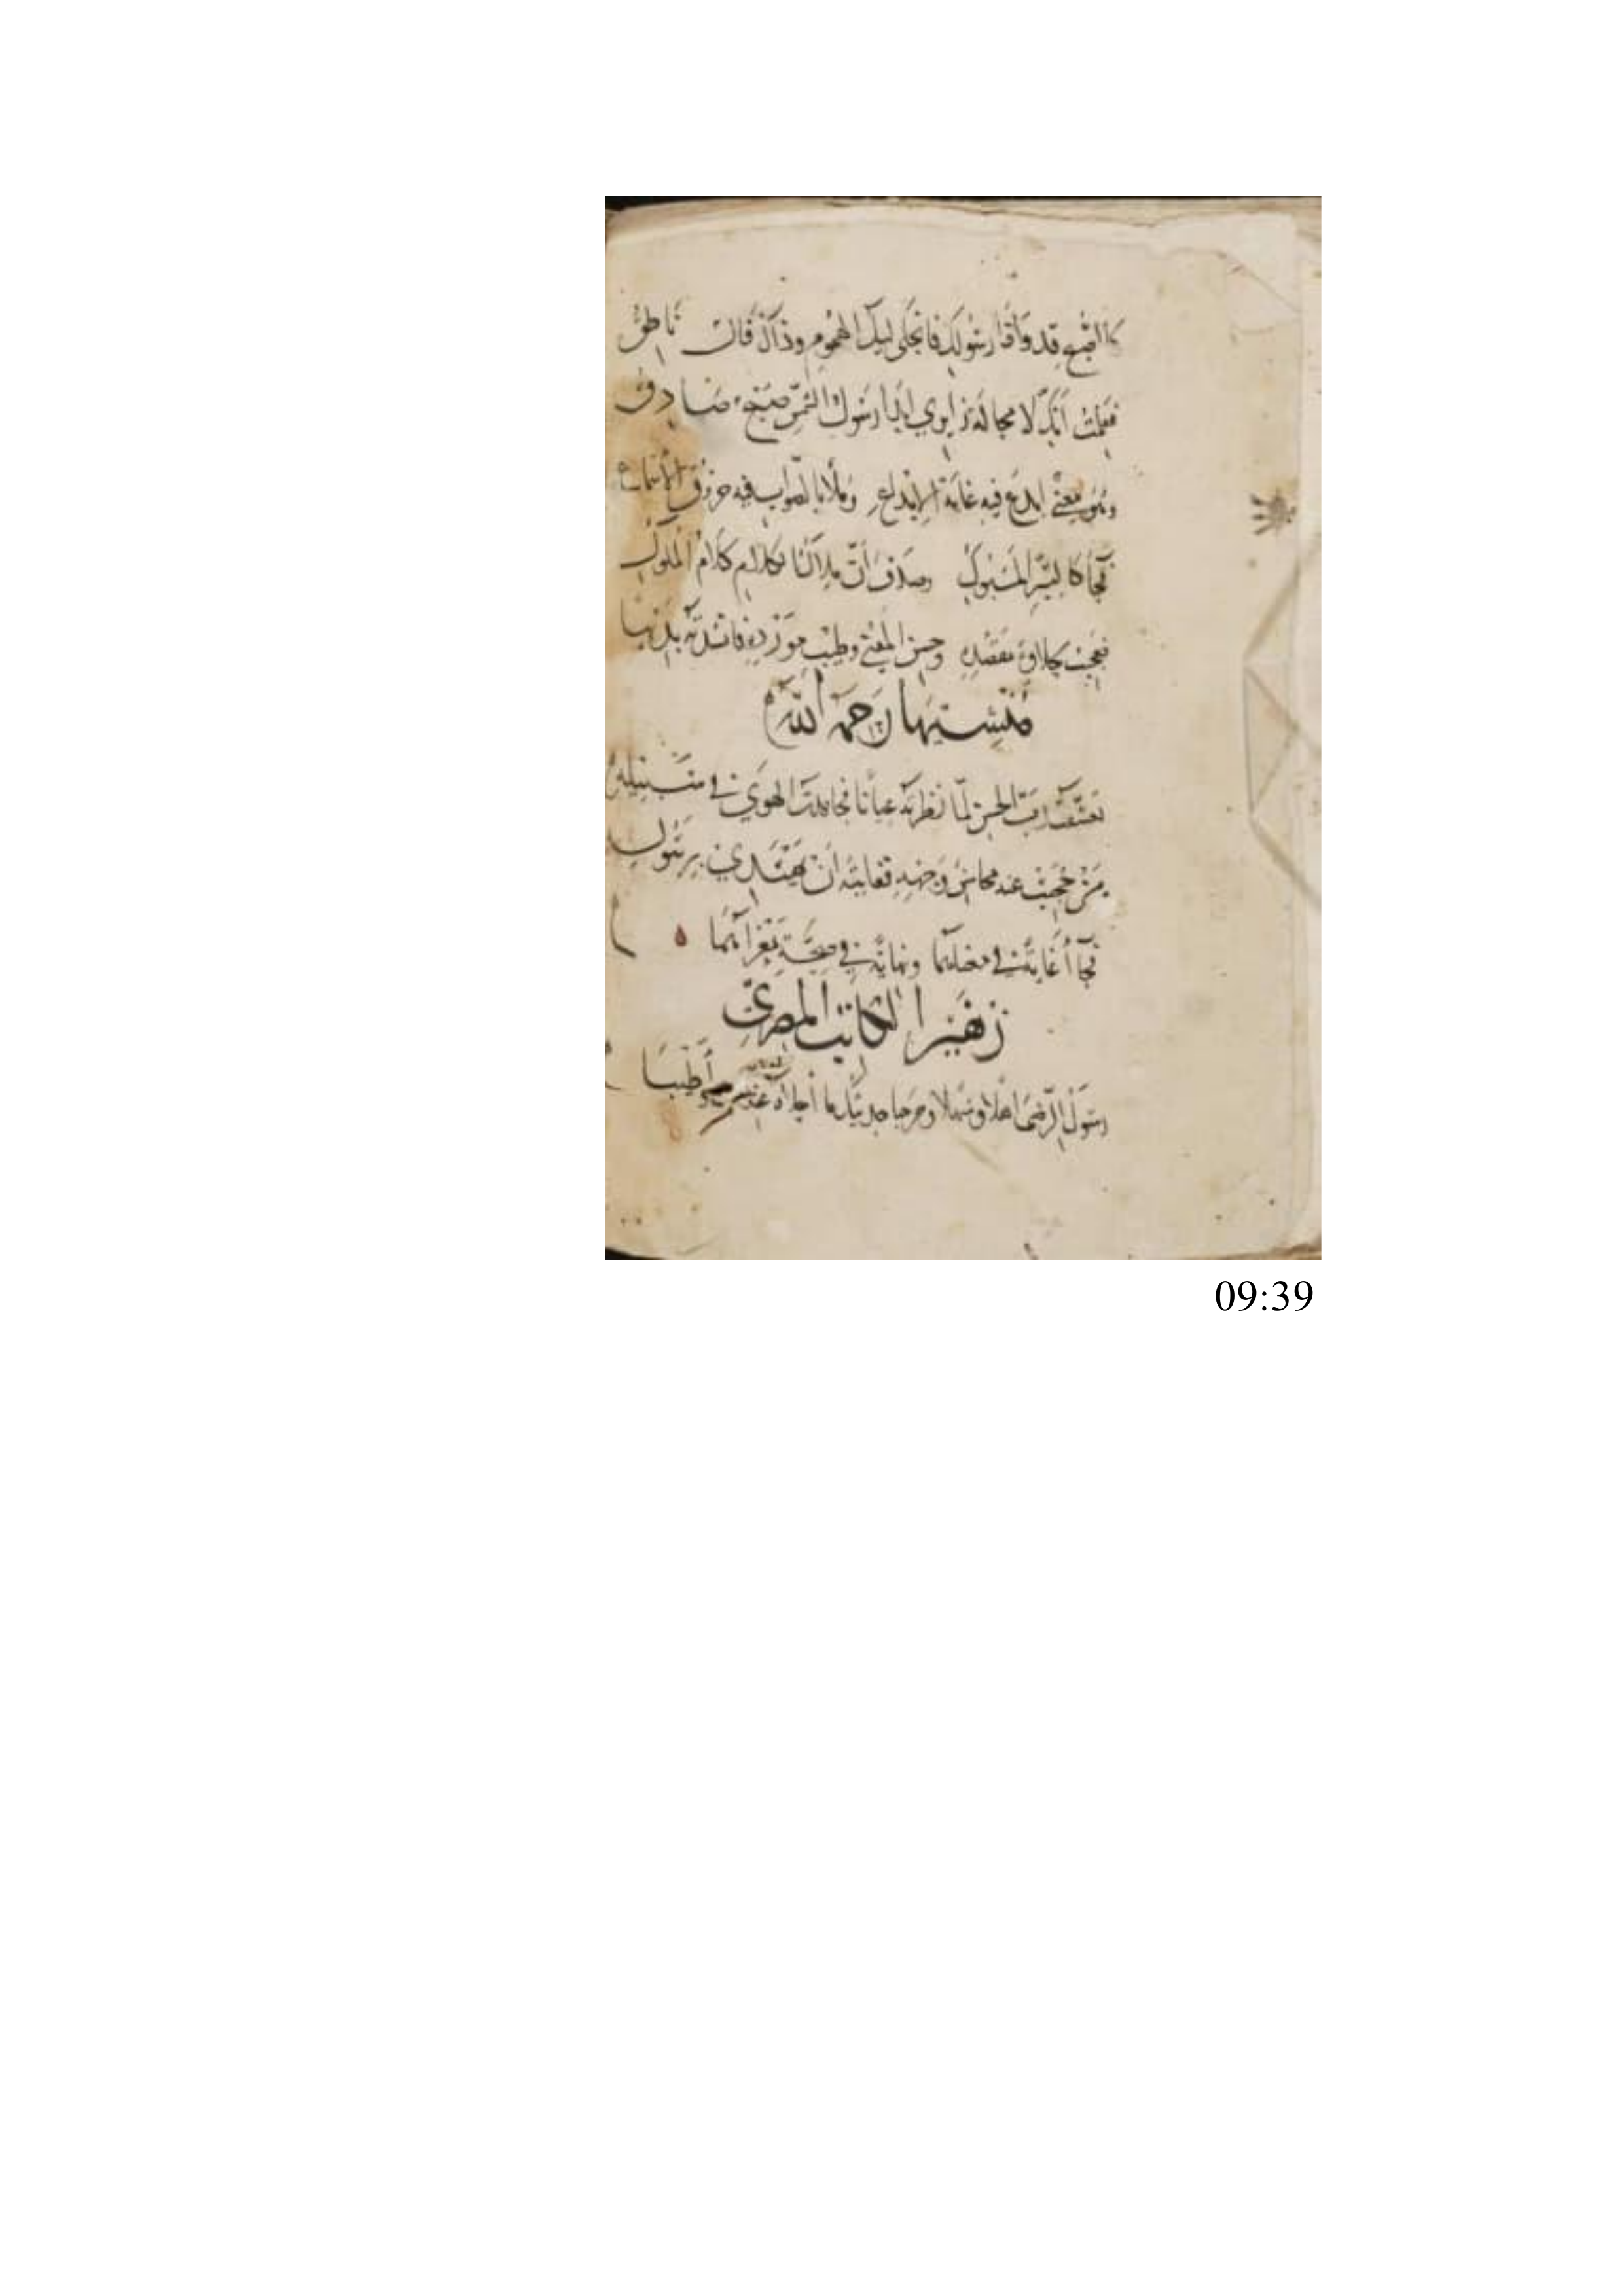 كالصبح قد وافا رسولك فانجلى ليل الهموم وذاك فال ناطق
فعلمت أنك لا محالة زايري ابدا رسول الشمس صبح صادق
وهو معنى ابدع فيه غاية الابداع وملأ بالصواب فيه حروق الاسماع
فجآ كالتبر المسبوك وصدق أن ملاك الكلام كلام الملوك
فعجبت بحلاوة مقصده وحسن المعنى وطيب مورده فانشدته بديها
منشيها رحمه الله
تعشقت رب الحسن لما نظرته عيانا فجاهدت الهوى في سبيله
ومن حجبت عنه محاسن وجهه فغايته ان يهتدي برسوله
فجآأ غاية في فضلهما ونهاية في صحة
زهير الكاتب المصري
رسول الرضى اهلا وسهلا ومرحبا حديثك ما أحلاه عندي وأطيبا
09:39